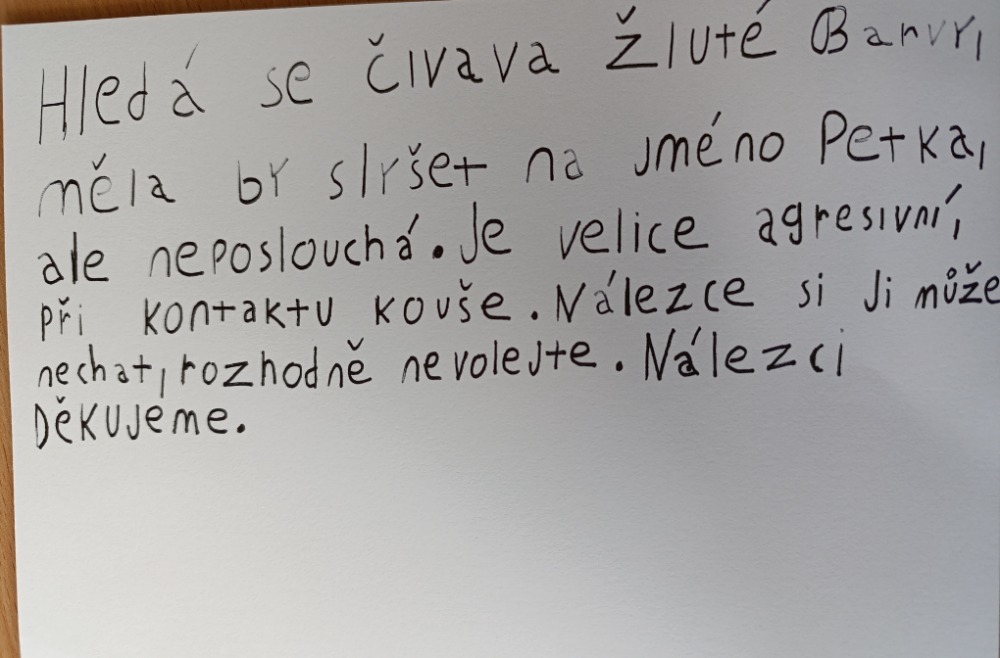 Hledá se čivava žluté Barvy,
měla by slyšet na jméno Petka,
ale neposlouchá. Je velice agresivní,
při kontaktu kouše. Nálezce si Ji může
nechat, rozhodně nevolejte. Nálezci
Děkujeme.